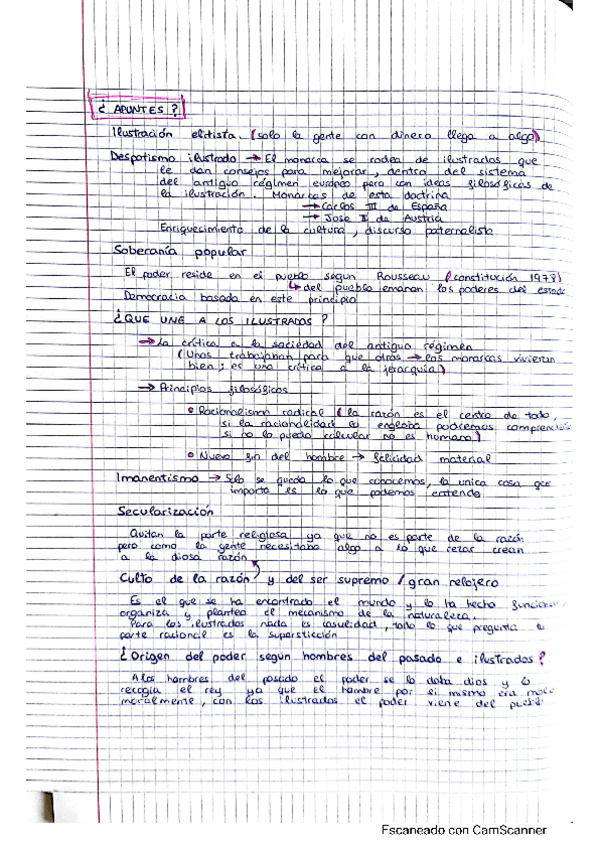 ¿ APUNTES ?
Ilustración elitista. (solo la gente con dinero llega a algo)
Despotismo ilustrado → El monarca se rodea de ilustrados que
le dan consejos para mejorar, dentro del sistema
del antiguo régimen europeo pero con ideas filosóficas de
la ilustración. Monarcas de esta doctrina
→ Carlos III de España
→ Jose II de Austria
Enriquecimiento de la cultura, discurso paternalista
Soberanía popular
El poder reside en el pueblo según Rousseau (constitución 1978)
↳ del pueblo emanan los poderes del estado
Democracia basada en este principio
¿QUE UNE A LOS ILUSTRADOS?
→ La crítica a la sociedad del antiguo régimen
(Unos trabajaban para que otros → los monarcas vivieran
bien; es una crítica a la jerarquía)
→ Principios filosóficos
• Racionalismo radical (la razón es el centro de todo,
si la racionalidad lo engloba podremos comprender
si no lo puedo calcular no es humano)
• Nuevo fin del hombre → felicidad material
Imanentismo → Solo se queda lo que conocemos, la unica cosa que
importa es lo que podemos entende
Secularización
Quitan la parte religiosa ya que no es parte de la razón
pero como la gente necesitaba algo a lo que rezar crean
a la diosa razón
Culto de la razón y del ser supremo / gran relojero
Es el que se ha encontrado el mundo y lo ha hecho funcionar
organiza y plantea el mecanismo de la naturaleza.
Para los ilustrados nada es casualidad, todo lo que pregunta
parte racional es la superstición
¿Origen del poder según hombres del pasado e ilustrados?
A los hombres del pasado el poder se lo daba dios y lo
recogía el rey ya que el hombre por si mismo era malo
moralmente, con los ilustrados el poder viene del pueblo
Escaneado con CamScanner